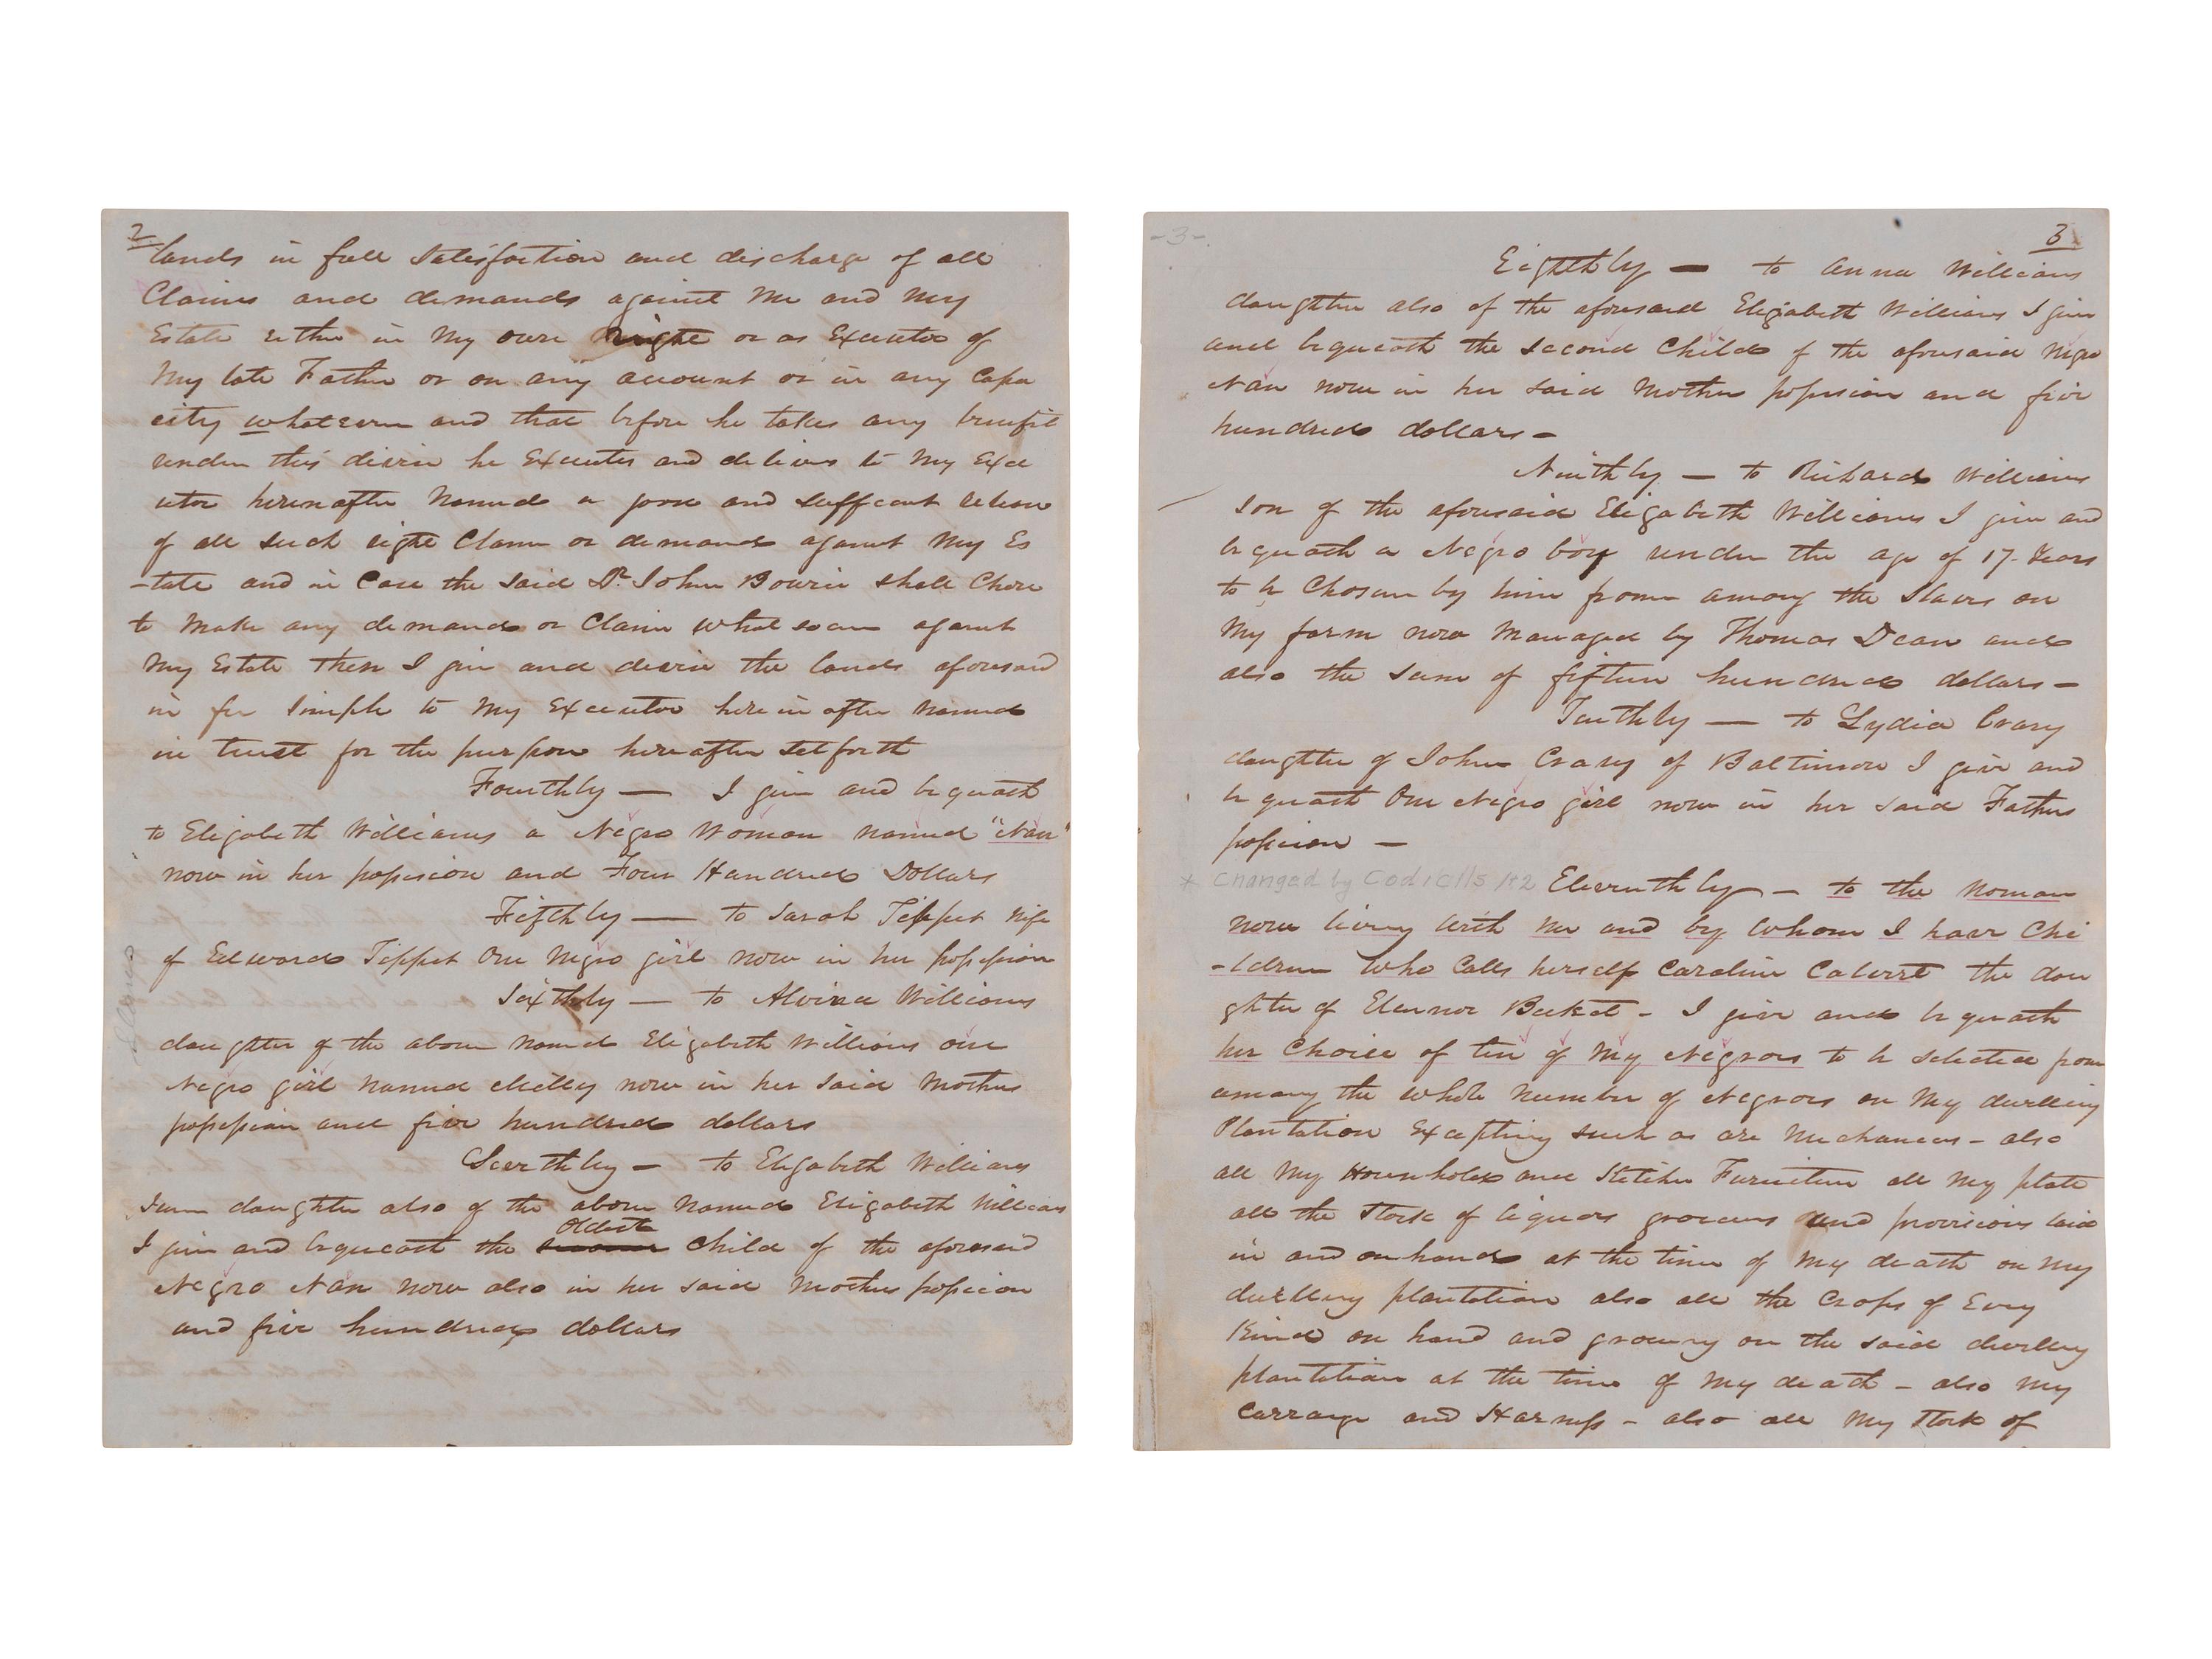 2
lands in full Satisfaction and discharge of all
Claims and demands against Me and My
Estate either in My own Right or as Executor of
My late Father or on any account or in any Capa
city whatever and that before he takes any benefit
under this devise he Executes and delivers to My Exe
utor hereinafter Named a and Suffecent release
of all such right Claim or demand against My Es
-tate and in Case the Said Dr. John Bowie Shall Chose
to Make any demand or Claim whatsoever against
My Estate then I give and devise the lands aforesaid
in fee Simple to My Executor here in after Named
in trust for the purpose hereafter Set forth
Fourthly — I give and bequeath
to Elizabeth Williams a Negro Woman Named "Nan"
now in her possession and Four Hundred Dollars
Fifthly — to Sarah Tippet Wife
of Edward Tippet One Negro girl now in her possession
Slaves
Sixthly — to Alvina Williams
daughter of the above Named Elizabeth Williams one
Negro girl Named Milley now in her Said Mothers
possession and five hundred dollars
Seventhly — to Elizabeth Williams
Junr daughter also of the above Named Elizabeth Williams
Oldest
I give and bequeath the second Child of the aforesaid
Negro Nan now also in her Said Mothers possession
and five hundred dollars
-3-. 3
Eighthly — to Anna Williams
daughter also of the aforesaid Elizabeth Williams I give
and bequeath the Second Child of the aforesaid Negro
Nan now in her Said Mothers possession and five
hundred dollars -
Ninthly — to Richard Williams
Son of the aforesaid Elizabeth Williams I give and
bequeath a Negro boy under the age of 17. Years
to be Chosen by him from among the Slaves on
My farm now Managed by Thomas Dean and
also the Sum of fifteen hundred dollars -
Tenthly — to Lydia Crary
daughter of John Crary of Baltimore I give and
bequeath One Negro girl now in her Said Fathers
possession —
* Changed by Codicils 1+2 Eleventhly - to the Woman
now living with me and by whom I have Chi
-ldren who Calls herself Caroline Calvert the dau
ghter of Eleanor Becket - I give and bequeath
her Choice of ten of My Negroes to be Selected from
among the whole Number of Negroes on My dwelling
Plantation Excepting such as are Mechanics - also
all My Household and Kitchen Furniture all My plate
all the Stock of liquors groceries and provisions laid
in and on hand at the time of My death on My
dwelling plantation also all the Crops of Every
Kind on hand and growing on the Said dwelling
plantation at the time of My death - also My
Carriage and Harness - also all My Stock of